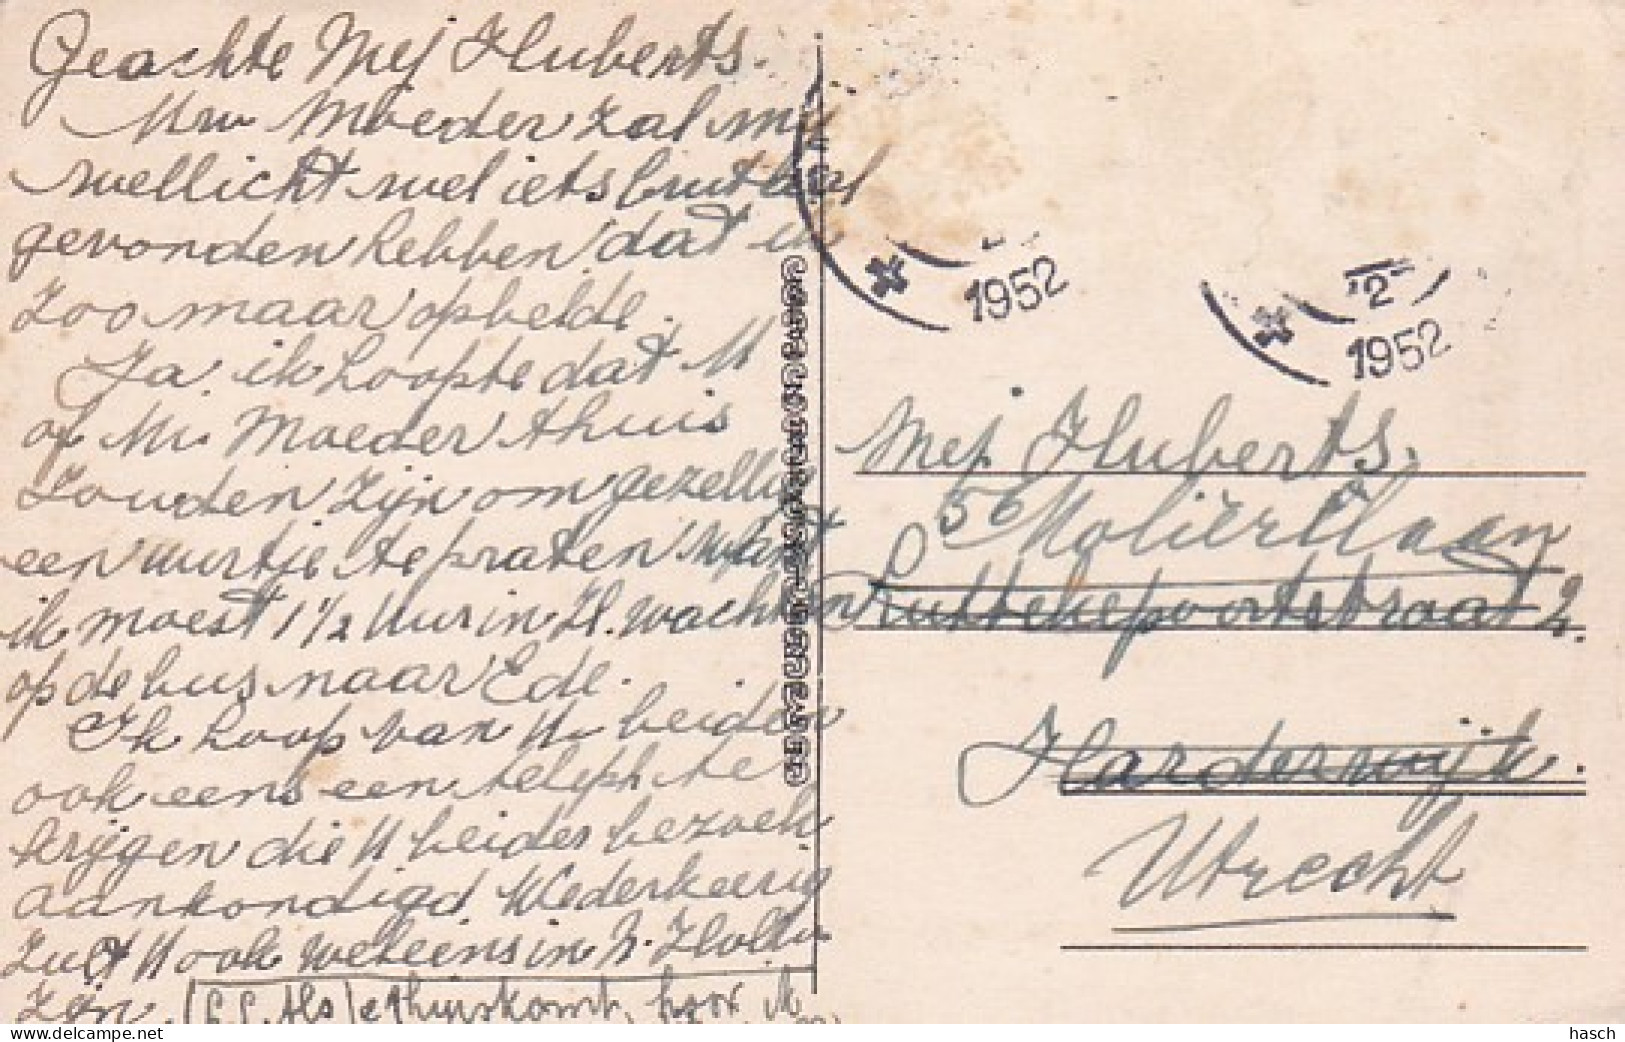 Geachte Mej Huberts.
Uw Moeder zal mij
wellicht wel iets brutaal
gevonden hebben dat ik
zoo maar opbelde.
Ja, ik hoopte dat U
of Uw Moeder thuis
zouden zijn om gezellig
een uurtje te praten want
ik moest 1 1/2 Uur in H. wachten
op de bus naar Ede.
Ik hoop van U beiden
ook eens een telyph te
krijgen die U beider bezoek
aankondigd. Wederkeerig
zult U ook weleens in
zijn
thuiskomt,
1952
12
1952
Mej. Huberts.
56 Molièrelaan
Luttekepoortstraat 2.
Harderwijk.
Utrecht
hasch